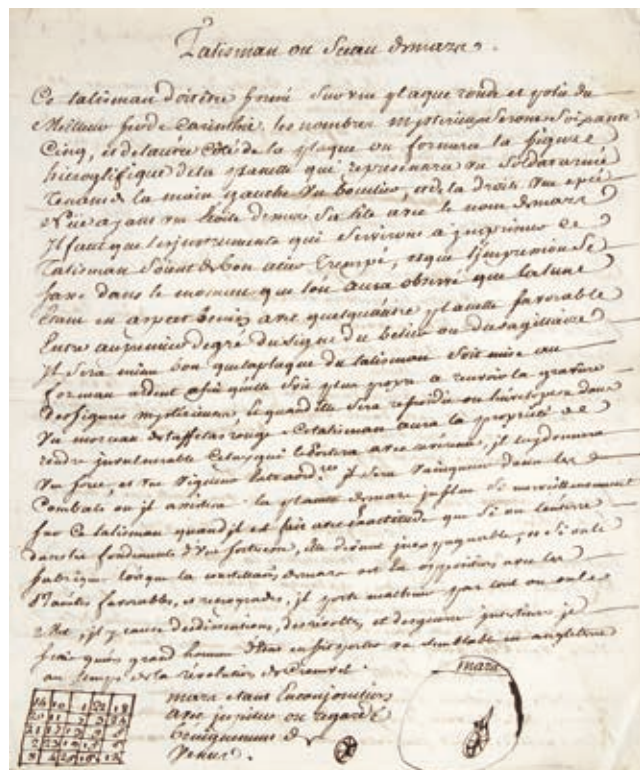 Talisman ou Sceau de mars.
Ce talisman doit être formé sur une plaque ronde et polie du
Meilleur fer de Carinthie. les nombres mysterieux seront soixante
Cinq, et de lautre côté de la plaque on formera la figure
hieroglifique de la planette qui representera un soldat armé
tenant de la main gauche un bouclier, et de la droite une epée
nüe ayant une étoile dessus sa tête avec le nom de mars
Il faut que les instruments qui serviront a imprimer ce
Talisman soient de bon acier trempé, et que l'impression se
fasse dans le moment que lon aura observé que la lune
Etant en aspect benin avec quelquautre planette favorable
Entre au premier degré du signe du belier ou du sagittaire
Il sera meme bon que la plaque du talisman soit mise au
fourneau ardent afin quelle soit plus propre a recevoir la gravure
des figures mysterieuses. Et quand elle sera refroidie on l'envelopera dans
un morceau de taffetas rouge. Ce talisman aura la proprieté de
rendre invulnerable celuy qui le portera avec reverence, il luy donnera
une force, et une vigueur extraordres. Il sera vainqueur dans les
Combats ou il assistera. la planette de mars influe si merveilleusement
sur ce talisman quand il est fait avec exactitude que si on l'enterre
dans les fondements d'une forteresse, elle devient inexpugnable, et si on le
fabrique lorsque la constellation de mars est en opposition avec les
Planettes favorables, et retrogrades, il porte malheur par tout ou on le
met, il y cause des dissentions, des revoltes, et des guerres intestines je
sçais qu'un grand homme d'Etat en fit porter un semblable en angleterre
au temps de la révolution de Cromvel.
14 10 1 22 18
mars
mars etant En conjonction
avec jupiter ou regardé
benignement de
venus.